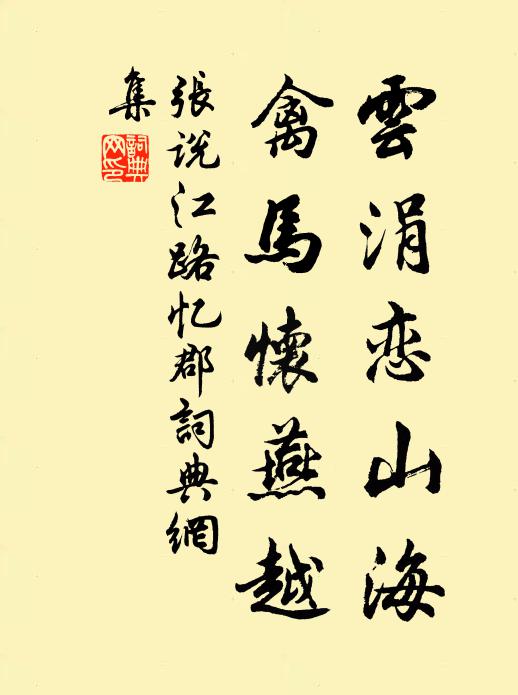 雲涓恋山海
禽馬懷燕越
張说江路忆郡詞典網
集
詞典
网印